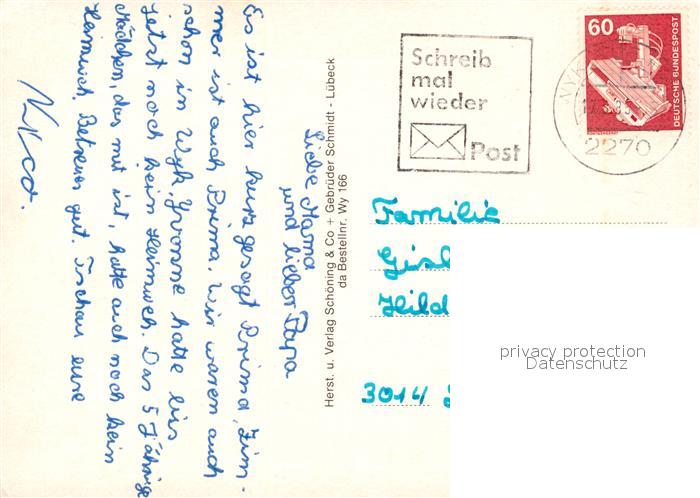 Liebe Mama
und lieber Papa
Es ist hier kurz gesagt Prima, Zim-
mer ist auch Prima. Wir waren auch
schon in Wyk. Yvonne hatte bis
jetzt noch kein Heimweh. Das 5 Jährige
Mädchen, das mit ist, hatte auch noch kein
Heimweh. Betreuer gut. Tschau eure
Herst. u. Verlag Schöning & Co + Gebrüder Schmidt - Lübeck
da Bestellnr. Wy 166
Schreib
mal
wieder
Post
60
DEUTSCHE BUNDESPOST
WYK
2270
Familie
Gisl
Hild
3014
privacy protection
Datenschutz